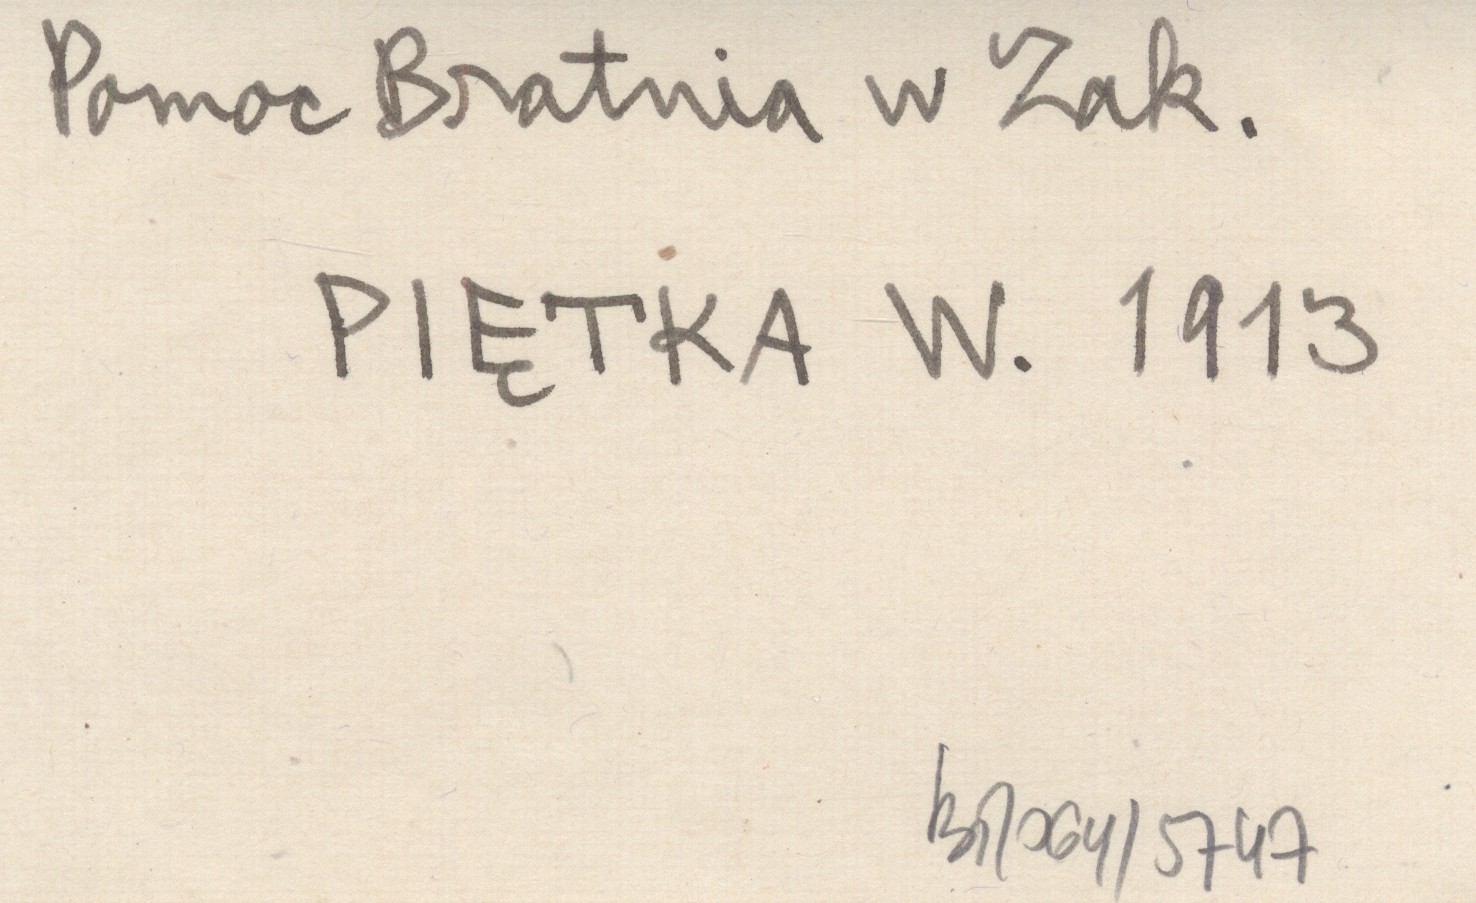 Pomoc Bratnia w Zak.
PIĘTKA W. 1913
5747